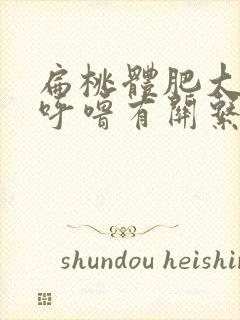 扁桃體肥大
呼嚕有關繫
shundou heishin